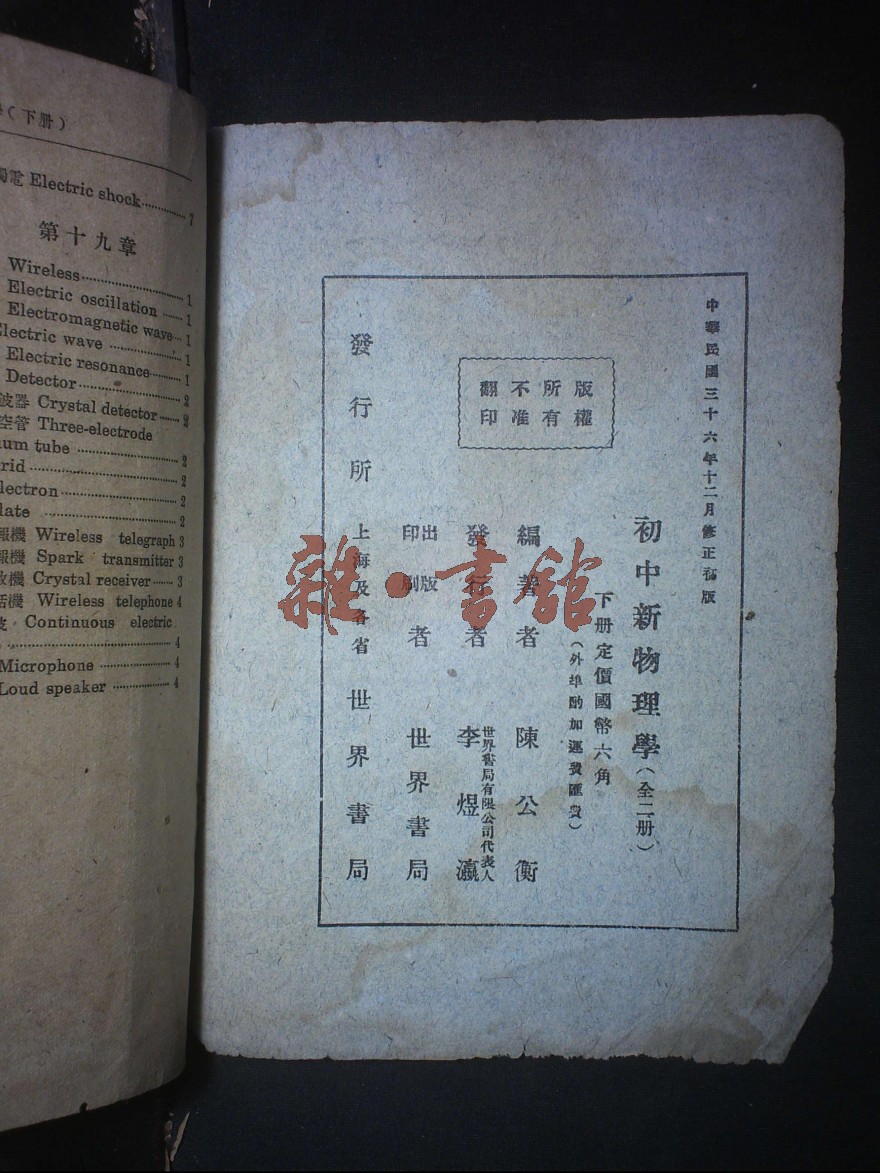 （下册）
觸電 Electric shock 7
第十九章
Wireless 1
Electric oscillation 1
Electromagnetic wave 1
Electric wave 1
Electric resonance 1
Detector 2
波器 Crystal detector 2
空管 Three-electrode
um tube 2
rid 2
lectron 2
late 2
報機 Wireless telegraph 3
報機 Spark transmitter 3
收機 Crystal receiver 3
話機 Wireless telephone 4
波 Continuous electric
4
Microphone 4
Loud speaker 4
中華民國三十六年十二月修正初版
初中新物理學（全二册）
下册定價國幣六角
（外埠酌加運費匯費）
版權所有不准翻印
編著者 陳公衡
發行者 李煜瀛
世界書局有限公司代表人
出版印刷者 世界書局
發行所 上海及各省 世界書局
雜·書館